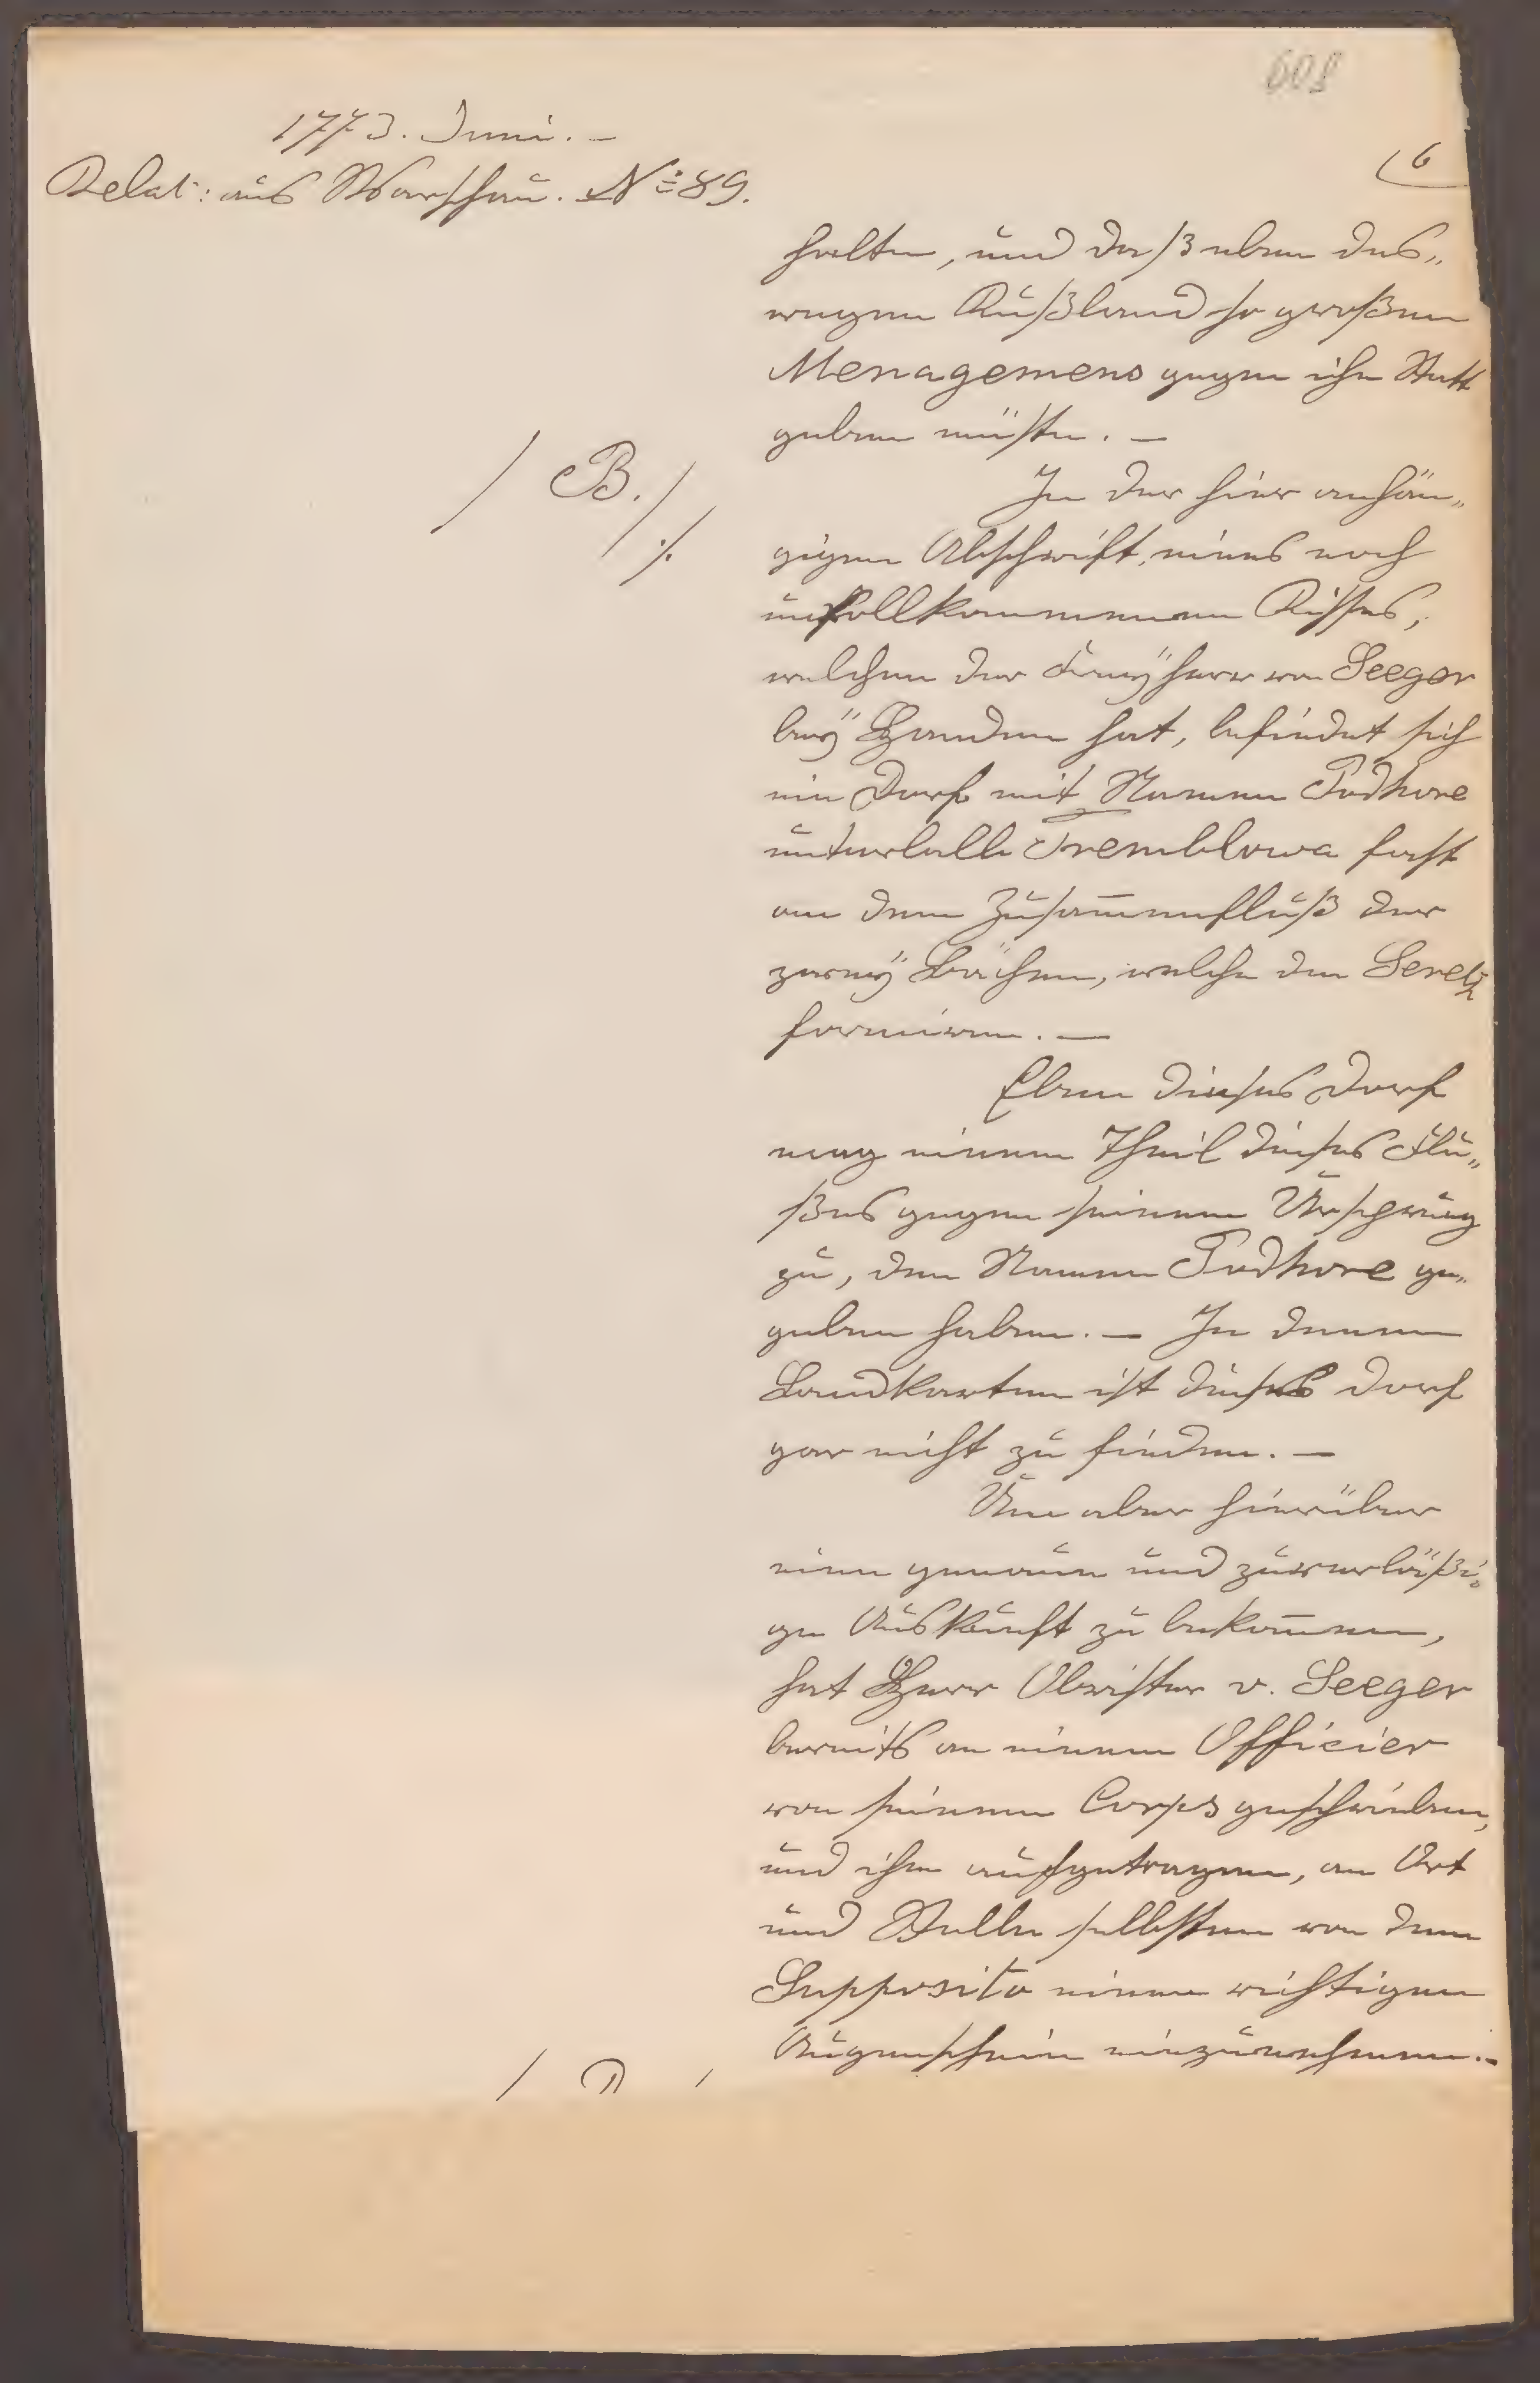 608
1773. Juni. —
(6
Relat: aus Warschau. No: 89.
halten, und daß eben des„
wegen Rußland so großen
Menagemens gegen ihn Statt
geben müste. —
/ B. /
In der hier anhän„
./.
gigen Abschrift, eines noch
unvollkommenen Rißes,
welchen der Freyherr von Seeger
bey Handen hat, befindet sich
ein Dorf mit Namen Podhore
unterhalb Tremblowa fast
an dem Zusam̅enfluß der
zwey Bächen, welche den Seretz
formiren. —
Eben dieses Dorf
mag einem Theil dieses Flu„
ßes gegen seinem Ursprung
zu, den Namen Podhore ge„
geben haben. — In denen
Landkarten ist dieses Dorf
gar nicht zu finden. —
Um aber hierüber
eine genaue und zuverläßi„
ge Auskunft zu bekom̅en,
hat Herr Obrister v. Seeger
bereits an einem Officier
von seinem Corps geschrieben,
und ihm aufgetragen, an Ort
und Stelle selbsten von dem
Supposito einen richtigen
Augenschein einzunehmen. –